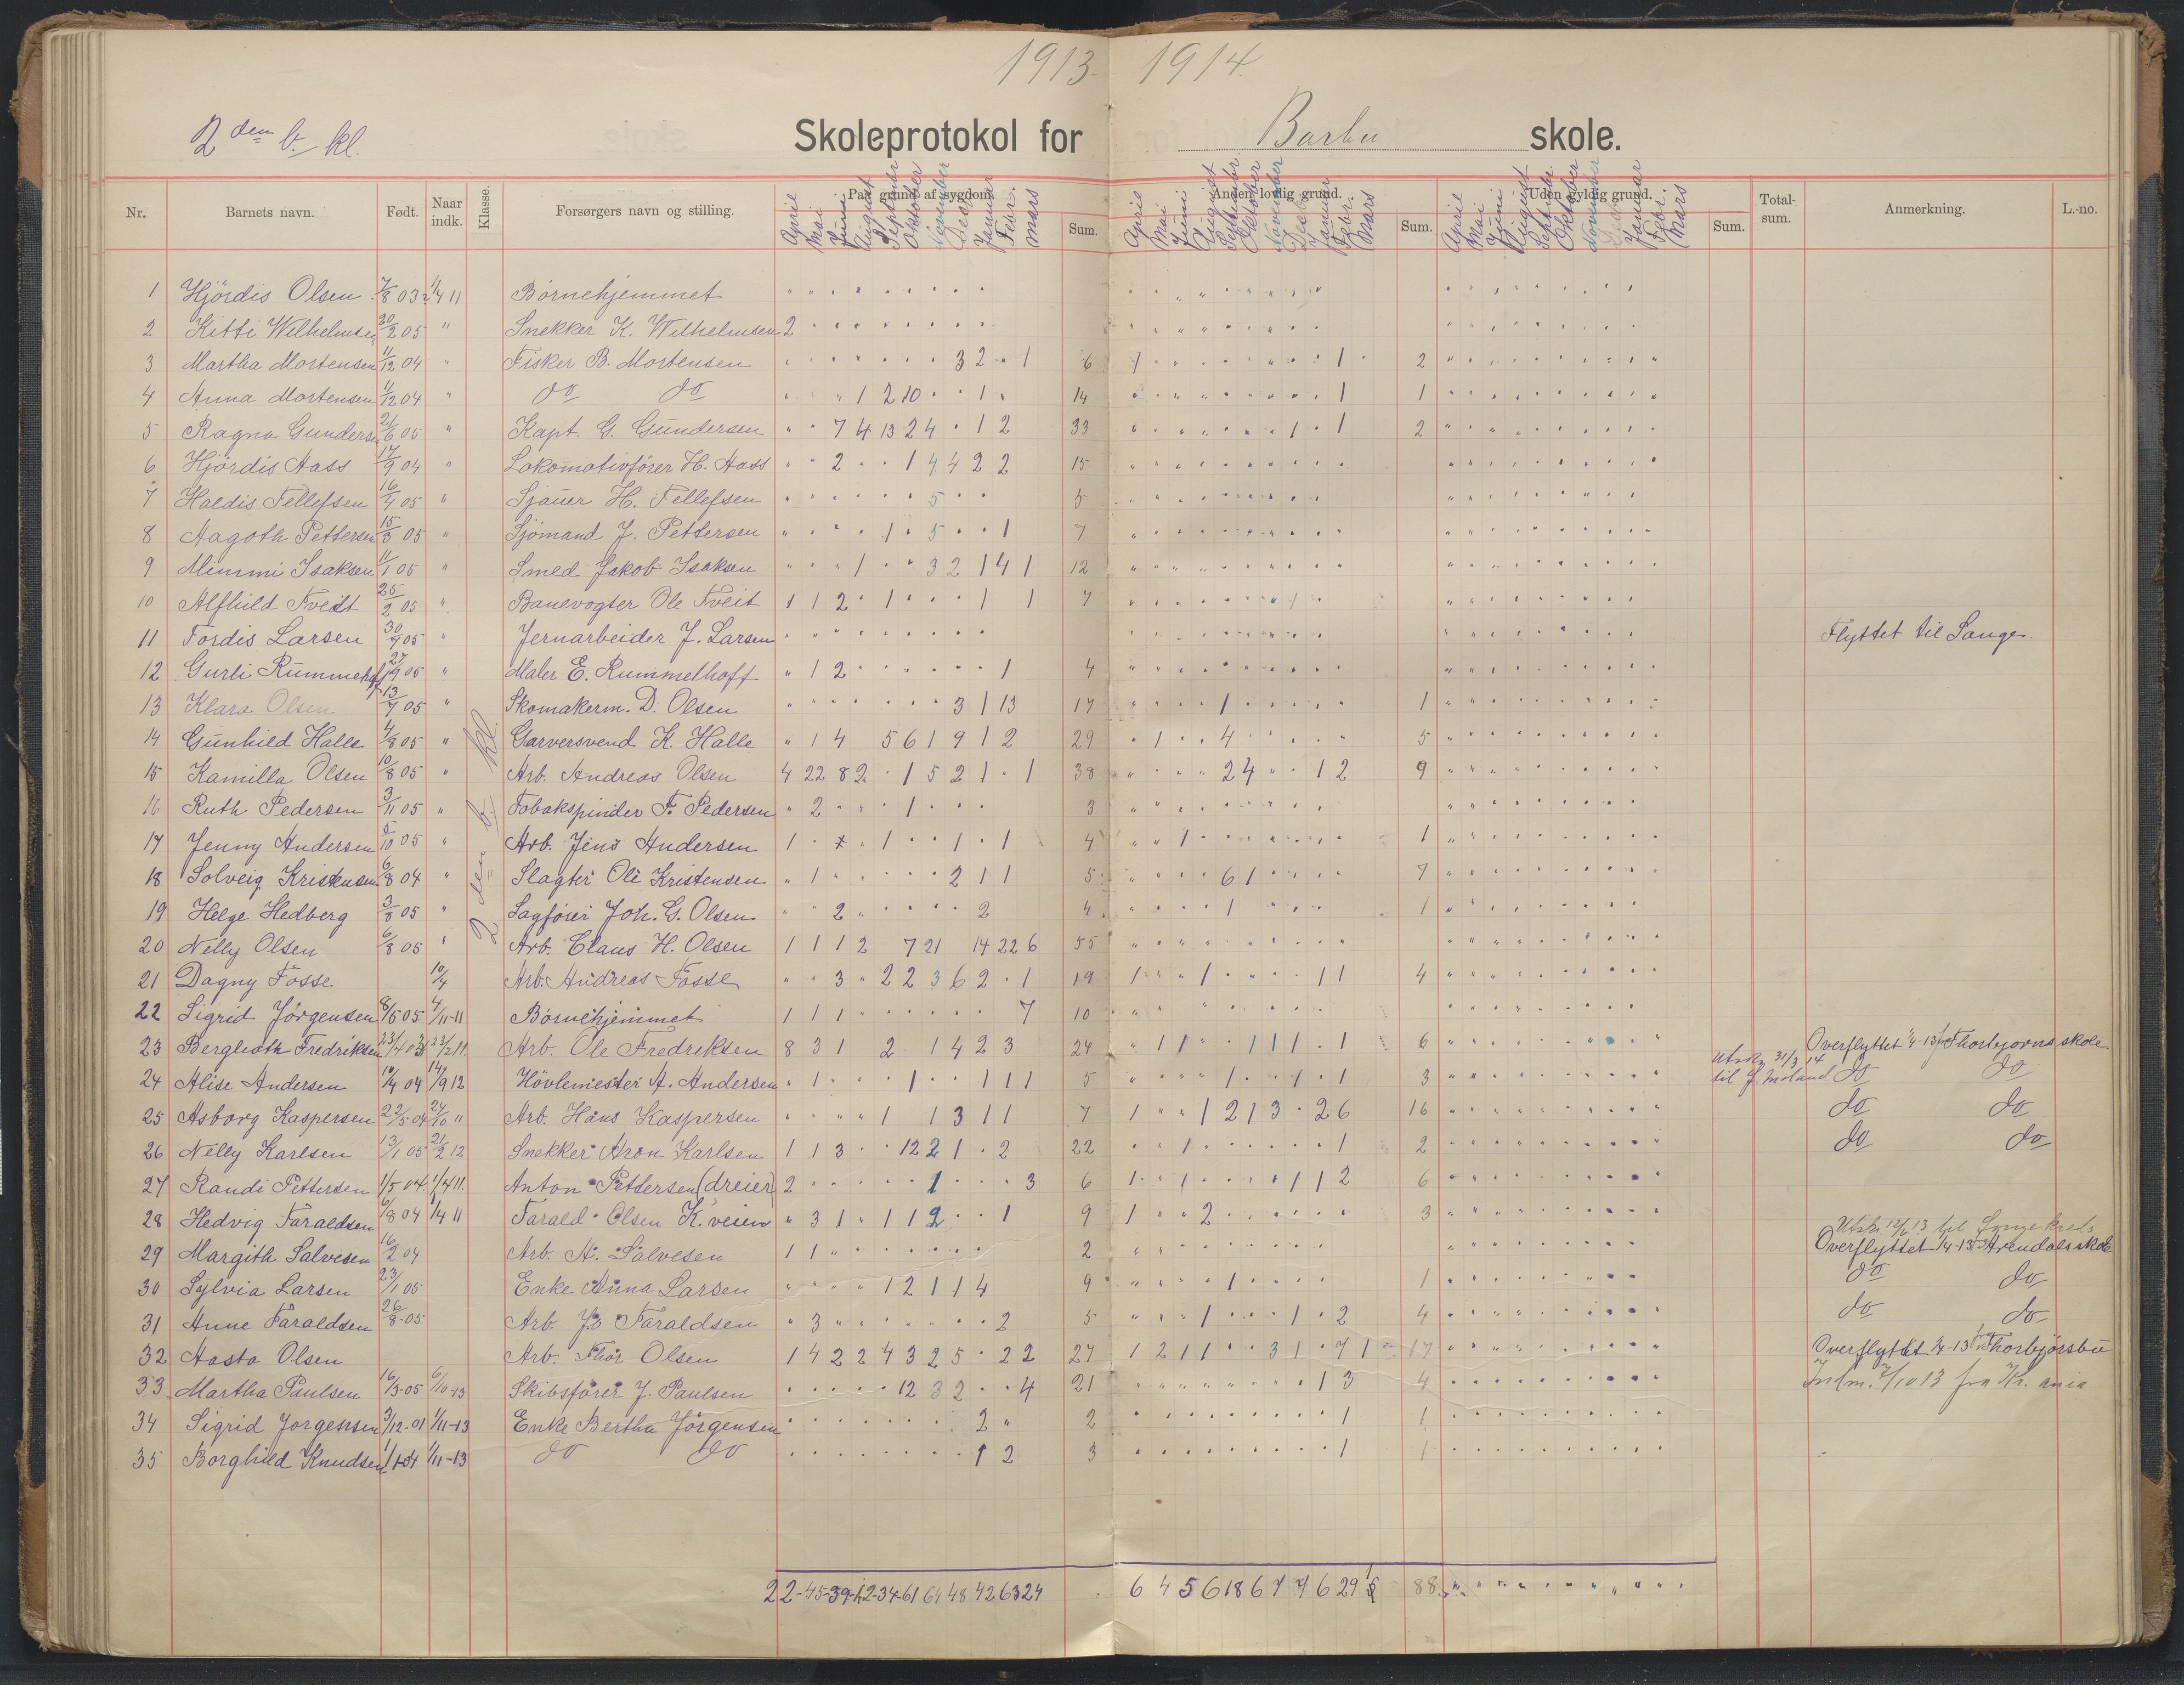 1913- 1914.
2 den b. kl. Skoleprotokol for Barbu skole.
Nr. Barnets navn. Født. Naar indk. Klasse. Forsørgers navn og stilling. Paa grund af sygdom. Sum. Anden lovlig grund. Sum. Uden gyldig grund. Sum. Total-sum. Anmerkning. L.-no.
April Mai Juni August September Oktober November Dec. Januar Febr. Mars
April Mai Juni August September Oktober November Dec. Januar Febr. Mars
April Mai Juni August Septbr. Oktober November Dec. Januar Febr. Mars
2 den b. kl.
1 Hjördis Olsen 7/8 03 1/4 11 Börnehjemmet
2 Kitti Wilhelmsen 20/2 05 " Snekker K. Wilhelmsen 2
3 Martha Mortensen 11/12 04 " Fisker B. Mortensen 3 2 1 6 1 1 2
4 Anna Mortensen 11/12 04 " do do 1 2 10 1 14 1 1
5 Ragna Gundersen 21/6 05 " Kapt. G. Gundersen 7 4 13 2 4 1 2 33 1 1 2
6 Hjördis Aass 17/9 04 " Lokomotivförer H. Aass 2 1 4 4 2 2 15
7 Haldis Tellefsen 16/4 05 " Sjauer H. Tellefsen 5 5
8 Aagoth Pettersen 15/3 05 " Sjömand J. Pettersen 1 5 1 7
9 Mimmi Isaksen 11/1 05 " Smed Jakob Isaksen 1 3 2 1 4 1 12
10 Alfhild Tveit 25/2 05 " Banevogter Ole Tveit 1 1 2 1 1 1 7
11 Tordis Larsen 30/9 05 " Jernarbeider J. Larsen Flyttet til Songe.
12 Gurli Rummelhoff 27/9 05 " Maler E. Rummelhoff 1 2 1 4
13 Klara Olsen 13/7 05 " Skomakerm. D. Olsen 3 1 13 17 1 1
14 Gunhild Halle 4/8 05 " Garversvend K. Halle 1 4 5 6 1 9 1 2 29 1 4 5
15 Kamilla Olsen 10/8 05 " Arb. Andreas Olsen 4 22 8 2 1 5 2 1 1 38 2 4 1 2 9
16 Ruth Pedersen 3/11 05 " Tobakspinder F. Pedersen 2 1 3
17 Jenny Andersen 5/10 05 " Arb. Jens Andersen 1 1 1 1 4 1 1
18 Solveig Kristensen 6/8 04 " Slagter Ole Kristensen 1 2 1 1 5 6 1 7
19 Helge Hedberg 3/8 05 " Sagförer Joh. G. Olsen 2 2 4 1 1
20 Nelly Olsen 6/8 05 " Arb. Claus H. Olsen 1 1 1 2 7 21 14 22 6 55
21 Dagny Fosse 10/4 Arb. Andreas Fosse 3 2 2 3 6 2 1 19 1 1 1 1 4
22 Sigrid Jörgensen 8/6 05 4/11-11 Börnehjemmet 1 1 1 7 10
23 Berglioth Fredriksen 23/4 03 23/2 11 Arb. Ole Fredriksen 8 3 1 2 1 4 2 3 24 1 1 1 1 1 1 6 Overflyttet 1/4-13 fra Thorbjorns skole
24 Alise Andersen 10/4 04 14/9 12 Hövlemester A. Andersen 1 1 1 1 1 5 1 1 1 3 Utskr. 31/3 14 til Ö. Moland do do
25 Asborg Kaspersen 22/5 04 24/10 " Arb. Hans Kaspersen 1 1 3 1 1 7 1 1 2 1 3 2 6 16 do do
26 Nelly Karlsen 13/1 05 21/2 12 Snekker Aron Karlsen 1 1 3 12 2 1 2 22 1 1 2 do do
27 Randi Pettersen 1/5 04 1/4 11. Anton Pettersen (dreier) 2 1 3 6 1 1 1 1 2 6
28 Hedvig Taraldsen 6/8 04 1/4 11 Tarald Olsen K. veien 3 1 1 1 2 1 9 1 2 3
29 Margith Salvesen 16/2 04 Arb. A. Salvesen 1 1 2 Overflyttet 1/4-13 fra Arendals skole
30 Sylvia Larsen 23/1 05 Enke Anna Larsen 1 2 1 1 4 9 1 1 do do
31 Anne Taraldsen 26/8-05 Arb. Jo Taraldsen 3 2 5 1 1 2 4 do do
32 Aasta Olsen Arb. Thor Olsen 1 4 2 2 4 3 2 5 2 2 27 1 2 1 1 3 1 7 1 17 Overflyttet 1/4-13 fra Thorbjörsbu
33 Martha Paulsen 16/3-05 6/10-13 Skibsförer J. Paulsen 12 3 2 4 21 1 3 4 Inlm. 7/10 13 fra Kr. ania
34 Sigrid Jorgensen 3/12-01 1/11-13 Enke Bertha Jörgensen 2 2 1 1
35 Borghild Knudsen 1/11-13 do do 1 2 3 1 1
22-45-39-12-34-61 64 48 42 63 24 6 4 5 6 18 6 7 7 6 29 88